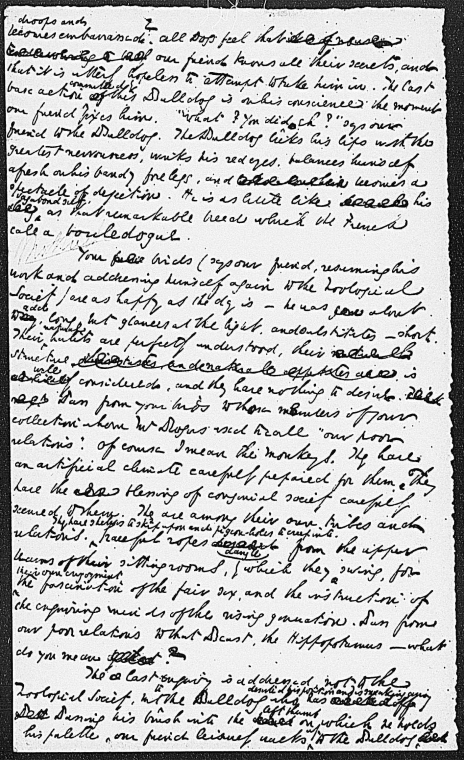 droops and
becomes embarrassed. all dogs feel that
our friend knows all their secrets, and
that it is utterly hopeless to attempt to take him in. The last
committed by
base action of this Bulldog is on his conscience the moment
our friend fixes him. "What? You did, eh?" says our
friend to the Bulldog. The Bulldog licks his lips with the
greatest nervousness, winks his red eyes, balances himself
afresh on his bandy forelegs, and becomes a
spectacle of dejection. He is as little like his
vagabond self,
as that remarkable breed which the French
call a bouledogue.
Your birds (says our friend, resuming his
work and addressing himself again to the Zoological
Society) are as happy as the day is – he was about
to add
long, but glances at the light, and substitutes – short.
Their habits are perfectly understood, their
structure is
well considered, and they have nothing to desire.
Pass from your birds to those members of your
collection whom Mr Rogers used to call "our poor
relations". Of course I mean the monkeys. They have
an artificial climate carefully prepared for them. They
have the blessing of congenial society carefully
secured to them. They are among their own tribes and
relations. They have shelves to skip upon and pigeon-holes to creep into.
Graceful ropes dangle from the upper
beams of their sittingrooms, by which they swing for
their own enjoyment
the fascination of the fair sex, and the instruction of
the enquiring minds of the rising generation. Pass from
our poor relations to that Beast, the Hippopotamus – what
do you mean ?
The last enquiry is addressed, not to the
Zoological Society, but to the Bulldog who has
deserted his position and is sneaking away
Passing his brush into the left thumb on which he holds
his palette, our friend leisurely walks to the Bulldog